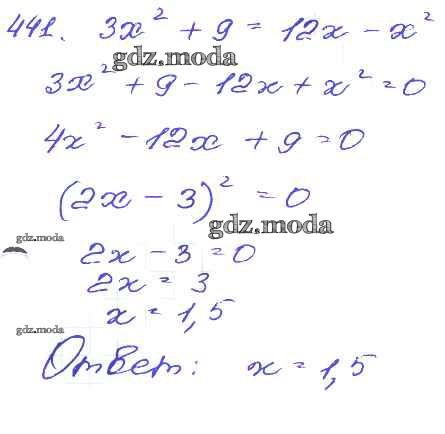 441. 3x² + 9 = 12x - x²
gdz.moda
3x² + 9 - 12x + x² = 0
4x² - 12x + 9 = 0
(2x - 3)² = 0
gdz.moda
gdz.moda
2x - 3 = 0
2x = 3
x = 1,5
gdz.moda
Ответ: x = 1,5